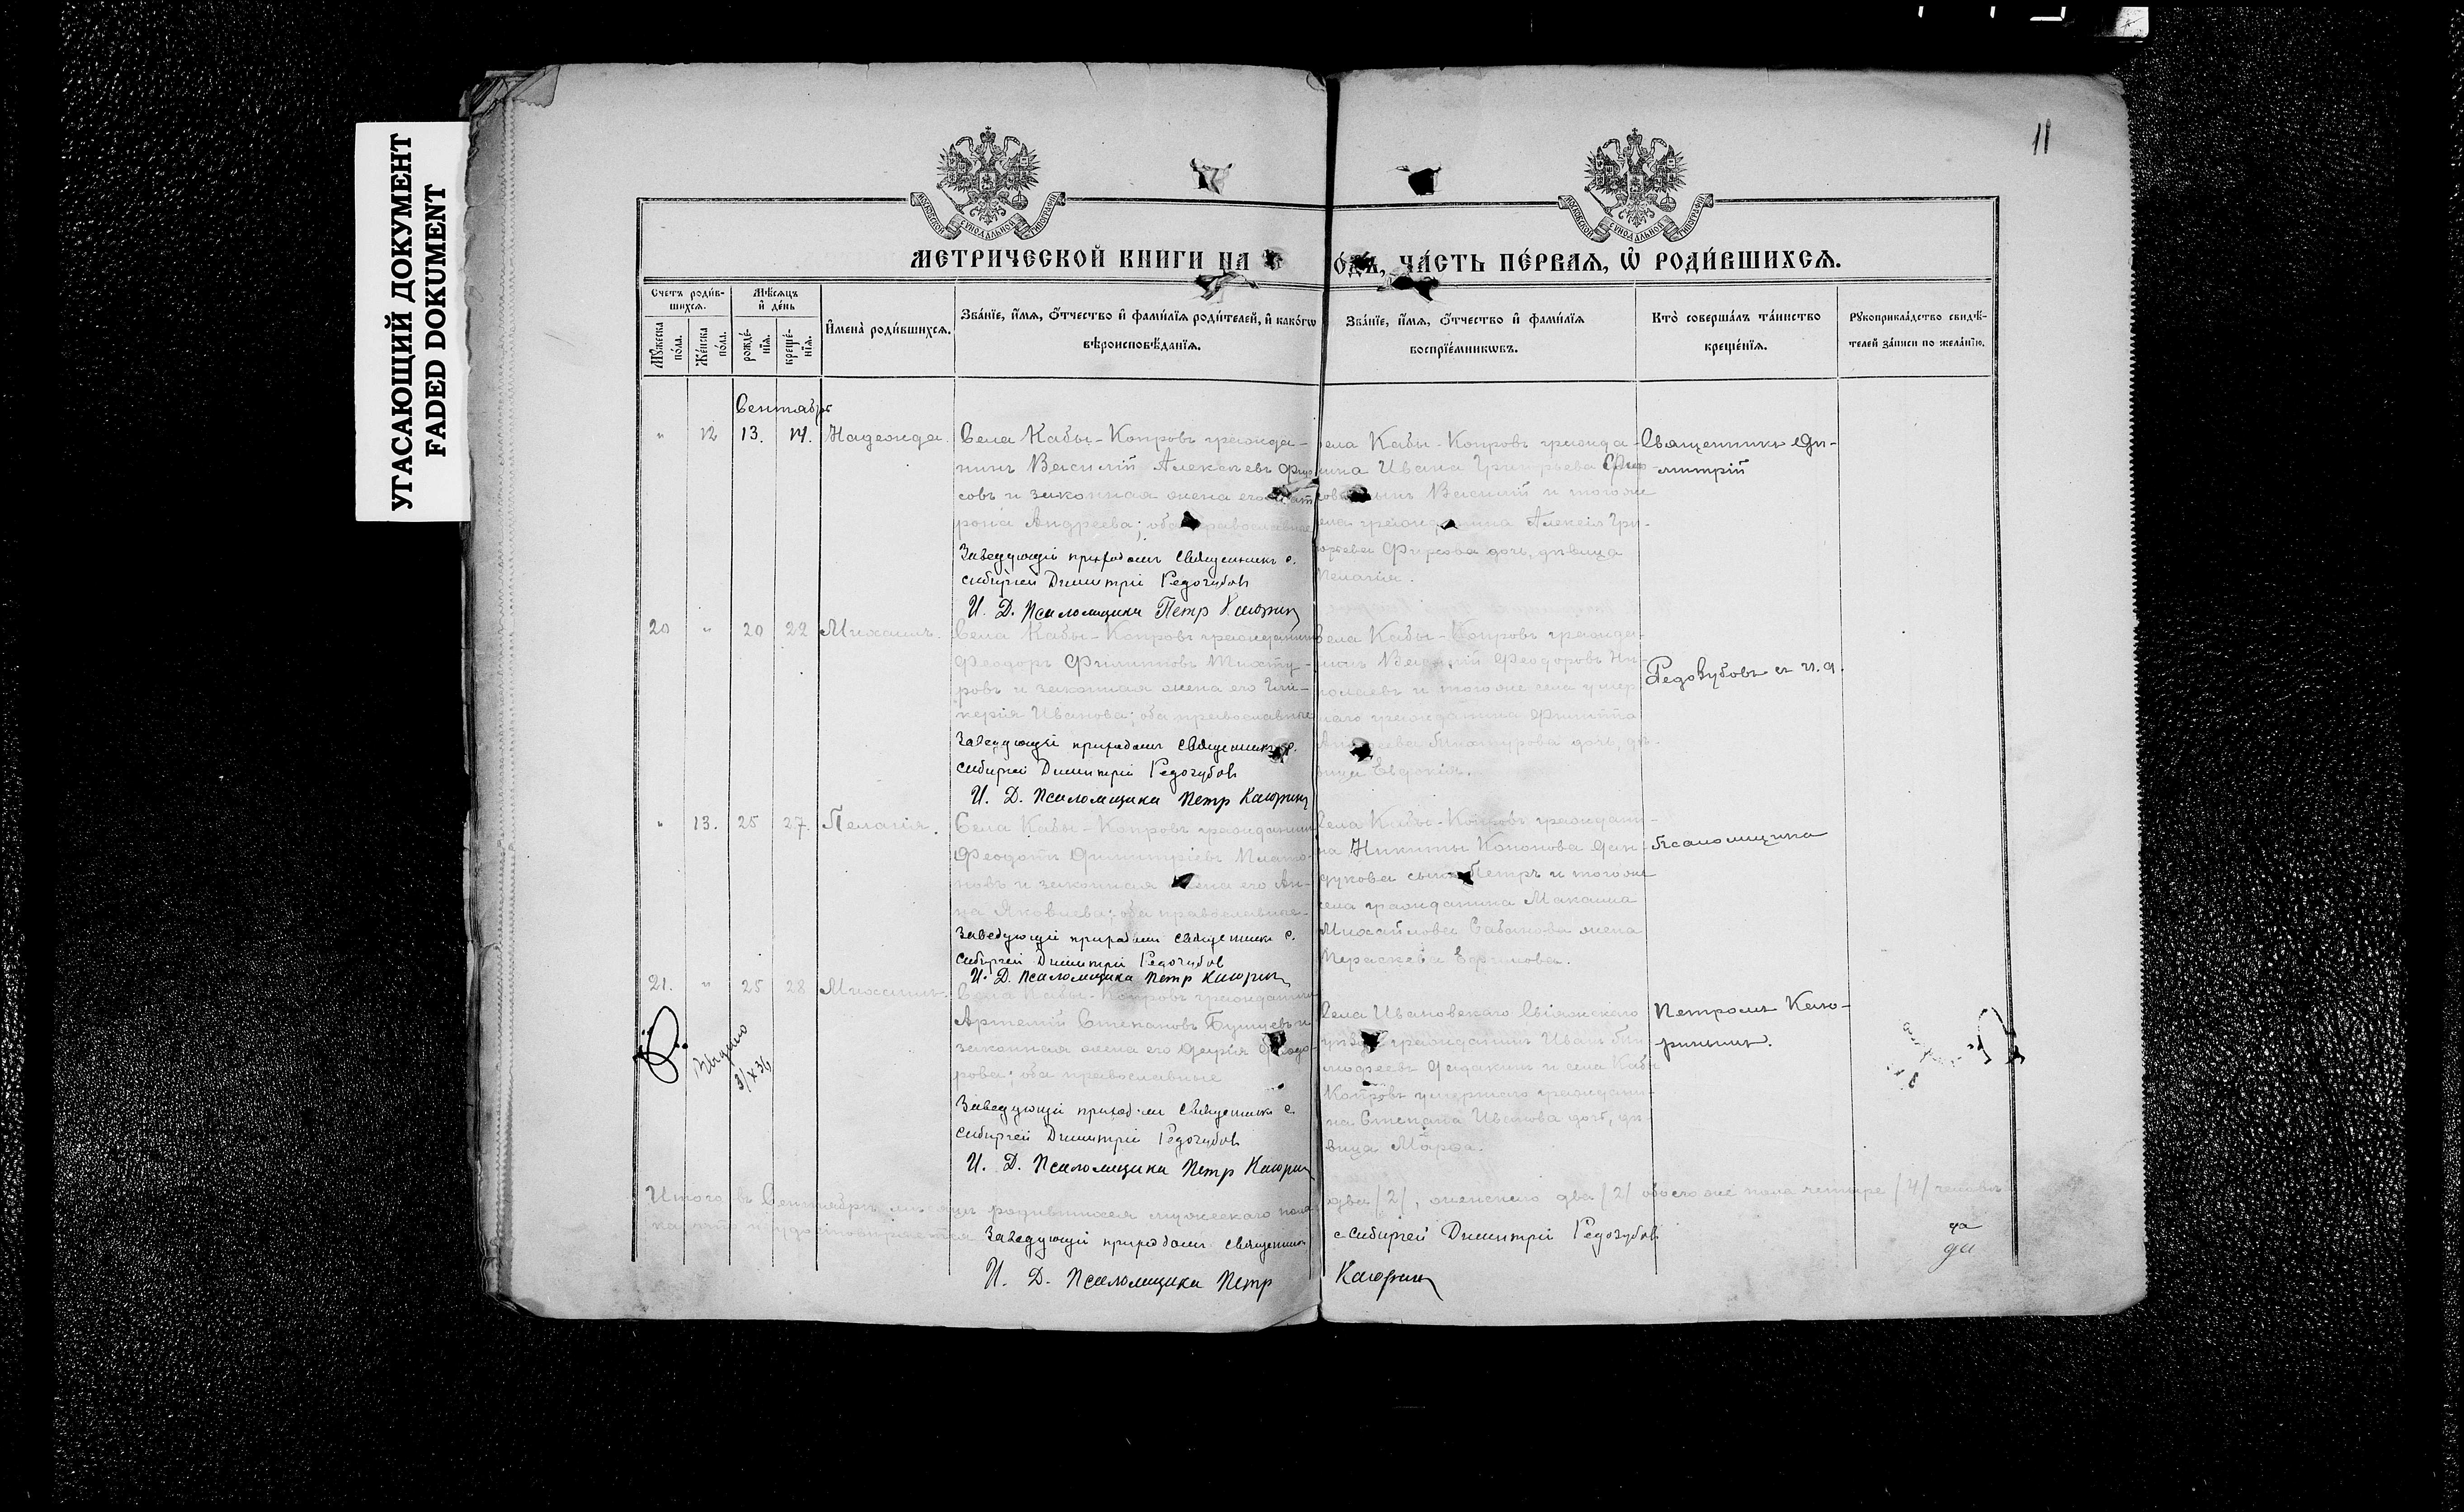 УГАСАЮЩИЙ ДОКУМЕНТ
FADED DOCUMENT
11
МОСКОВСКОЙ СУНОДАЛЬНОЙ ТИПОГРАФІИ
МОСКОВСКОЙ СУНОДАЛЬНОЙ ТИПОГРАФІИ
МЕТРИЧЕСКОЙ КНИГИ НА
ЧА́СТЬ ПЕ́РВАЯ, Ѽ РОДИ́ВШИХСЯ.
Счетъ роди́в-
шихся.
Мꙋжеска по́ла.
Же́нска по́ла.
Мѣсяцъ
и҆ де́нь
рожде́-
нїя.
креще́-
нїя.
И҆мена̀ роди́вшихся.
Зва́нїе, и҆́мя, ѻ҆́тчество и҆ фами́лїя роди́телей, и҆ како́гѡ
вѣроисповѣ́данїя.
Зва́нїе, и҆́мя, ѻ҆́тчество и҆ фами́лїя
воспрїе́мникѡвъ.
Кто̀ соверша́лъ та́инство
креще́нїя.
Рꙋкоприкла́дство свидѣ́-
телей за́писи по жела́нїю.
Сентябрь
" 12 13. 14. Надежда.
Села Кабы-Копровъ гражда-
нинъ Василій Алексѣевъ Фир
совъ и законная жена его Мат
рона Андреева; оба православные
Заведующій приходомъ священникъ с.
Сибирчей Димитрій Редозубовъ
И. Д. Псаломщика Петр Каюрин
села Кабы-Копровъ гражда-
нина Ивана Григорьева
сынъ Василій и того же
села гражданина Алексія Гри-
горьева Фирсова дочь, дѣвица
Пелагія.
Священникъ Ди-
митрій
20 " 20 22 Михаилъ.
Села Кабы-Копровъ гражданинъ
Феодоръ Филипповъ
ровъ и законная жена его Гли-
керія Иванова; оба православные
Заведующій приходомъ священникъ с.
Сибирчей Димитрій Редозубовъ
И. Д. Псаломщика Петр Каюрин
Села Кабы-Копровъ гражда-
нинъ Василій Феодоровъ Ни-
колаевъ и того же села умер
шаго гражданина Филиппа
Андреева дочь, дѣ-
вица Евдокія.
Редозубовъ съ и. д.
" 13. 25 27. Пелагія.
Села Кабы-Копровъ гражданинъ
Феодотъ Димитріевъ Плато-
новъ и законная жена его Ан-
на Яковлева; оба православные
Заведующій приходомъ священникъ с.
Сибирчей Димитрій Редозубов
И. Д. Псаломщика Петр Каюрин
Села Кабы-Копровъ граждани-
на Никиты Кононова
сынъ Петръ и того же
села гражданина Максима
Михайлова жена
Параскева Ефимова.
Псаломщика
21. " 25 28 Михаилъ.
Села Кабы-Копровъ гражданинъ
Артемій Степановъ и
законная жена его Дарія Феодо-
рова; оба православные
Заведующій приходом священникъ с.
Сибирчей Димитрій Редозубовъ
И. Д. Псаломщика Петр Каюрин
Села Ивановскаго Свіяжскаго
гражданинъ Иванъ
и села Кабы
Копровъ умершаго граждани-
на Степана Иванова дочь, дѣ-
вица Марѳа.
Петромъ Каю-
ринымъ.
Выдано
31/X 36
Итого въ Сентябрѣ мѣсяцѣ родившихся мужескаго пола
два /2/, женскаго два /2/ обоего же пола четыре /4/
Заведующій приходомъ священникъ
с Сибирчей Димитрій Редозубовъ
И. Д. Псаломщика Петр
Каюрин